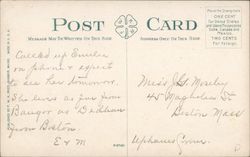 POST CARD
Place the Stamp Here
ONE CENT
For United States
and Island Possessions
Cuba, Canada and
Mexico.
TWO CENTS
For Foreign.
MESSAGE MAY BE WRITTEN ON THIS SIDE
ADDRESS ONLY ON THIS SIDE
Called up Emilie
on phone & expect
to see her tomorrow.
She lives as far from
Bangor as Dedham
from Boston.
E & M
Miss J. G. Moseley
45 Magnolia St
Boston Mass
Uphams Corner